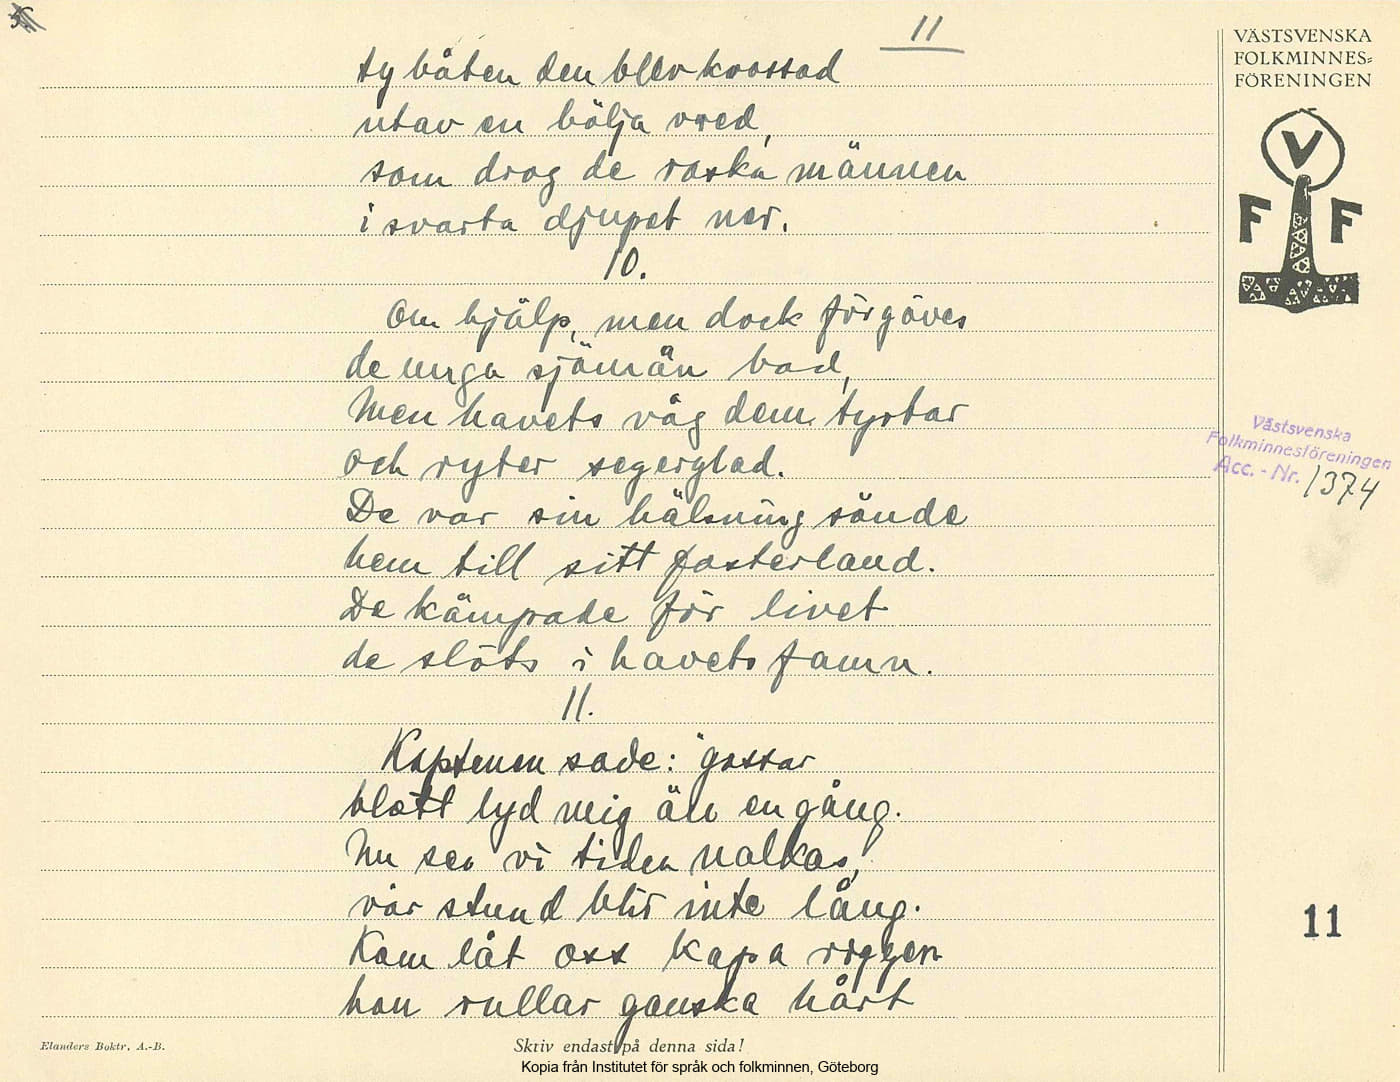 11
VÄSTSVENSKA
FOLKMINNES=
FÖRENINGEN
V
F F
ty båten den blev krossad
utav en bölja vred,
som drog de raska männen
i svarta djupet ner.
10.
Om hjälp, men dock förgäves
de unga sjömän bad,
Men havets våg dem tystar
och ryter segerglad.
De var sin hälsning sände
hem till sitt fosterland.
De kämpade för livet
de slöts i havets famn.
11.
Kaptenen sade: "gossar
blott lyd mig än en gång.
Nu ser vi tiden nalkas,
vår stund blir inte lång.
Kom låt oss kapa riggen
hon rullar ganska hårt
Västsvenska
Folkminnesföreningen
Acc. - Nr. 1374
11
Elanders Boktr. A.-B.
Skriv endast på denna sida!
Kopia från Institutet för språk och folkminnen, Göteborg